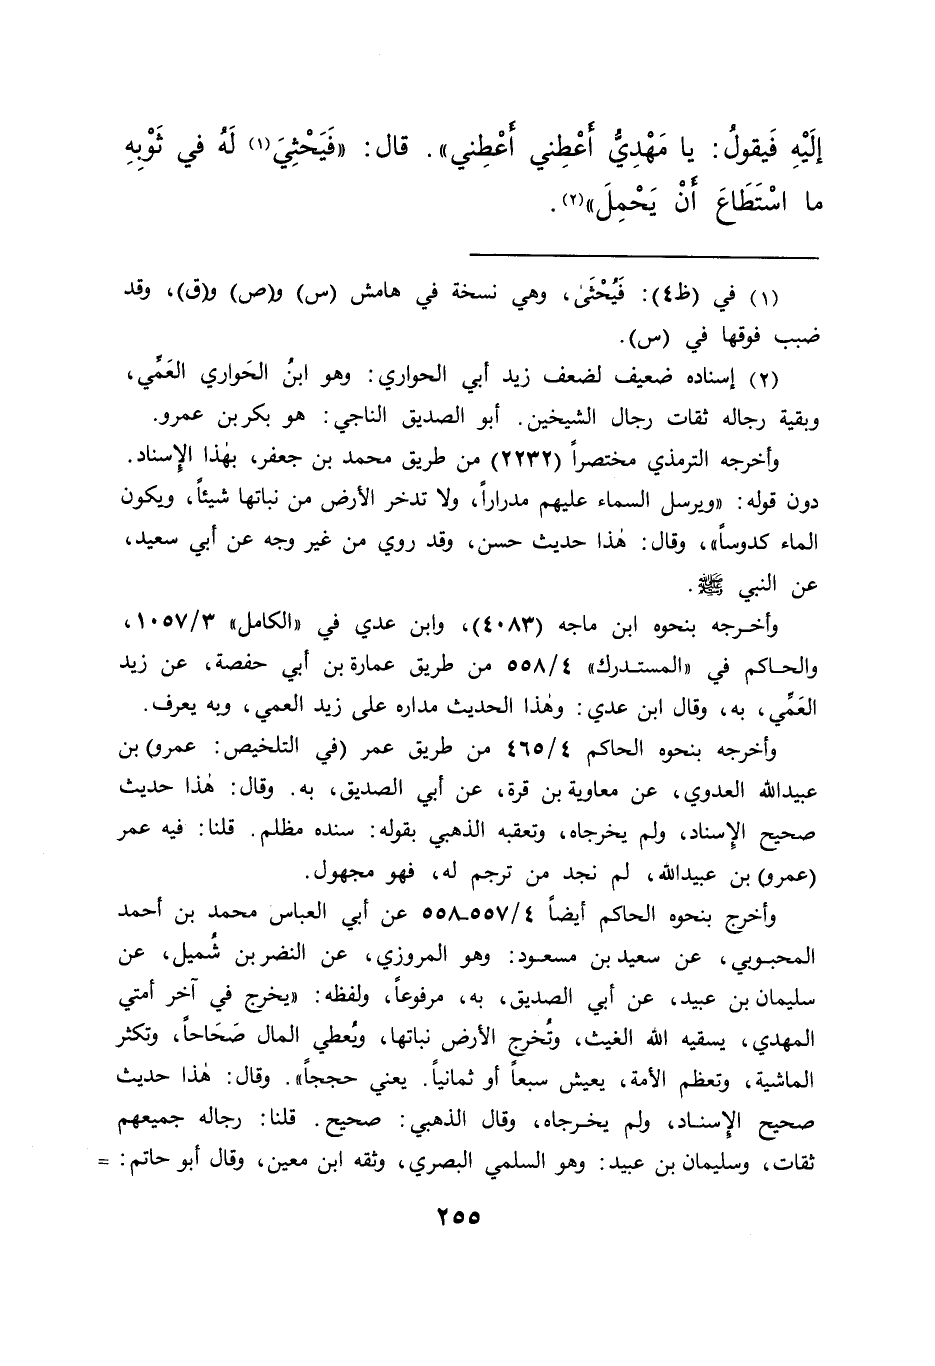 إِلَيْهِ فَيقولُ: يا مَهْدِيُّ أَعْطِني أَعْطِني». قال: «فَيَحْثِيَ(١) لَهُ في ثَوْبِهِ
ما اسْتَطَاعَ أَنْ يَحْمِلَ»(٢).
(١) في (ظ٤): فَيُحْثَىٰ، وهي نسخة في هامش (س) و(ص) و(ق)، وقد
ضبب فوقها في (س).
(٢) إسناده ضعيف لضعف زيد أبي الحواري: وهو ابنُ الحَواري العَمِّي،
وبقية رجاله ثقات رجال الشيخين. أبو الصديق الناجي: هو بكر بن عمرو.
وأخرجه الترمذي مختصراً (٢٢٣٢) من طريق محمد بن جعفر، بهٰذا الإسناد.
دون قوله: «ويرسل السماء عليهم مدراراً، ولا تدخر الأرض من نباتها شيئاً، ويكون
الماء كدوساً»، وقال: هٰذا حديث حسن، وقد روي من غير وجه عن أبي سعيد،
عن النبي ﷺ.
وأخرجه بنحوه ابن ماجه (٤٠٨٣)، وابن عدي في «الكامل» ١٠٥٧/٣،
والحاكم في «المستدرك» ٥٥٨/٤ من طريق عمارة بن أبي حفصة، عن زيد
العَمِّي، به، وقال ابن عدي: وهٰذا الحديث مداره على زيد العمي، وبه يعرف.
وأخرجه بنحوه الحاكم ٤٦٥/٤ من طريق عمر (في التلخيص: عمرو) بن
عبيدالله العدوي، عن معاوية بن قرة، عن أبي الصديق، به. وقال: هٰذا حديث
صحيح الإسناد، ولم يخرجاه، وتعقبه الذهبي بقوله: سنده مظلم. قلنا: فيه عمر
(عمرو) بن عبيدالله، لم نجد من ترجم له، فهو مجهول.
وأخرج بنحوه الحاكم أيضاً ٥٥٧/٤-٥٥٨ عن أبي العباس محمد بن أحمد
المحبوبي، عن سعيد بن مسعود: وهو المروزي، عن النضر بن شُميل، عن
سليمان بن عبيد، عن أبي الصديق، به، مرفوعاً، ولفظه: «يخرج في آخر أمتي
المهدي، يسقيه الله الغيث، وتُخرج الأرض نباتها، ويُعطي المال صَحَاحاً، وتكثر
الماشية، وتعظم الأمة، يعيش سبعاً أو ثمانياً. يعني حججاً». وقال: هٰذا حديث
صحيح الإسناد، ولم يخرجاه، وقال الذهبي: صحيح. قلنا: رجاله جميعهم
ثقات، وسليمان بن عبيد: وهو السلمي البصري، وثقه ابن معين، وقال أبو حاتم: =
٢٥٥